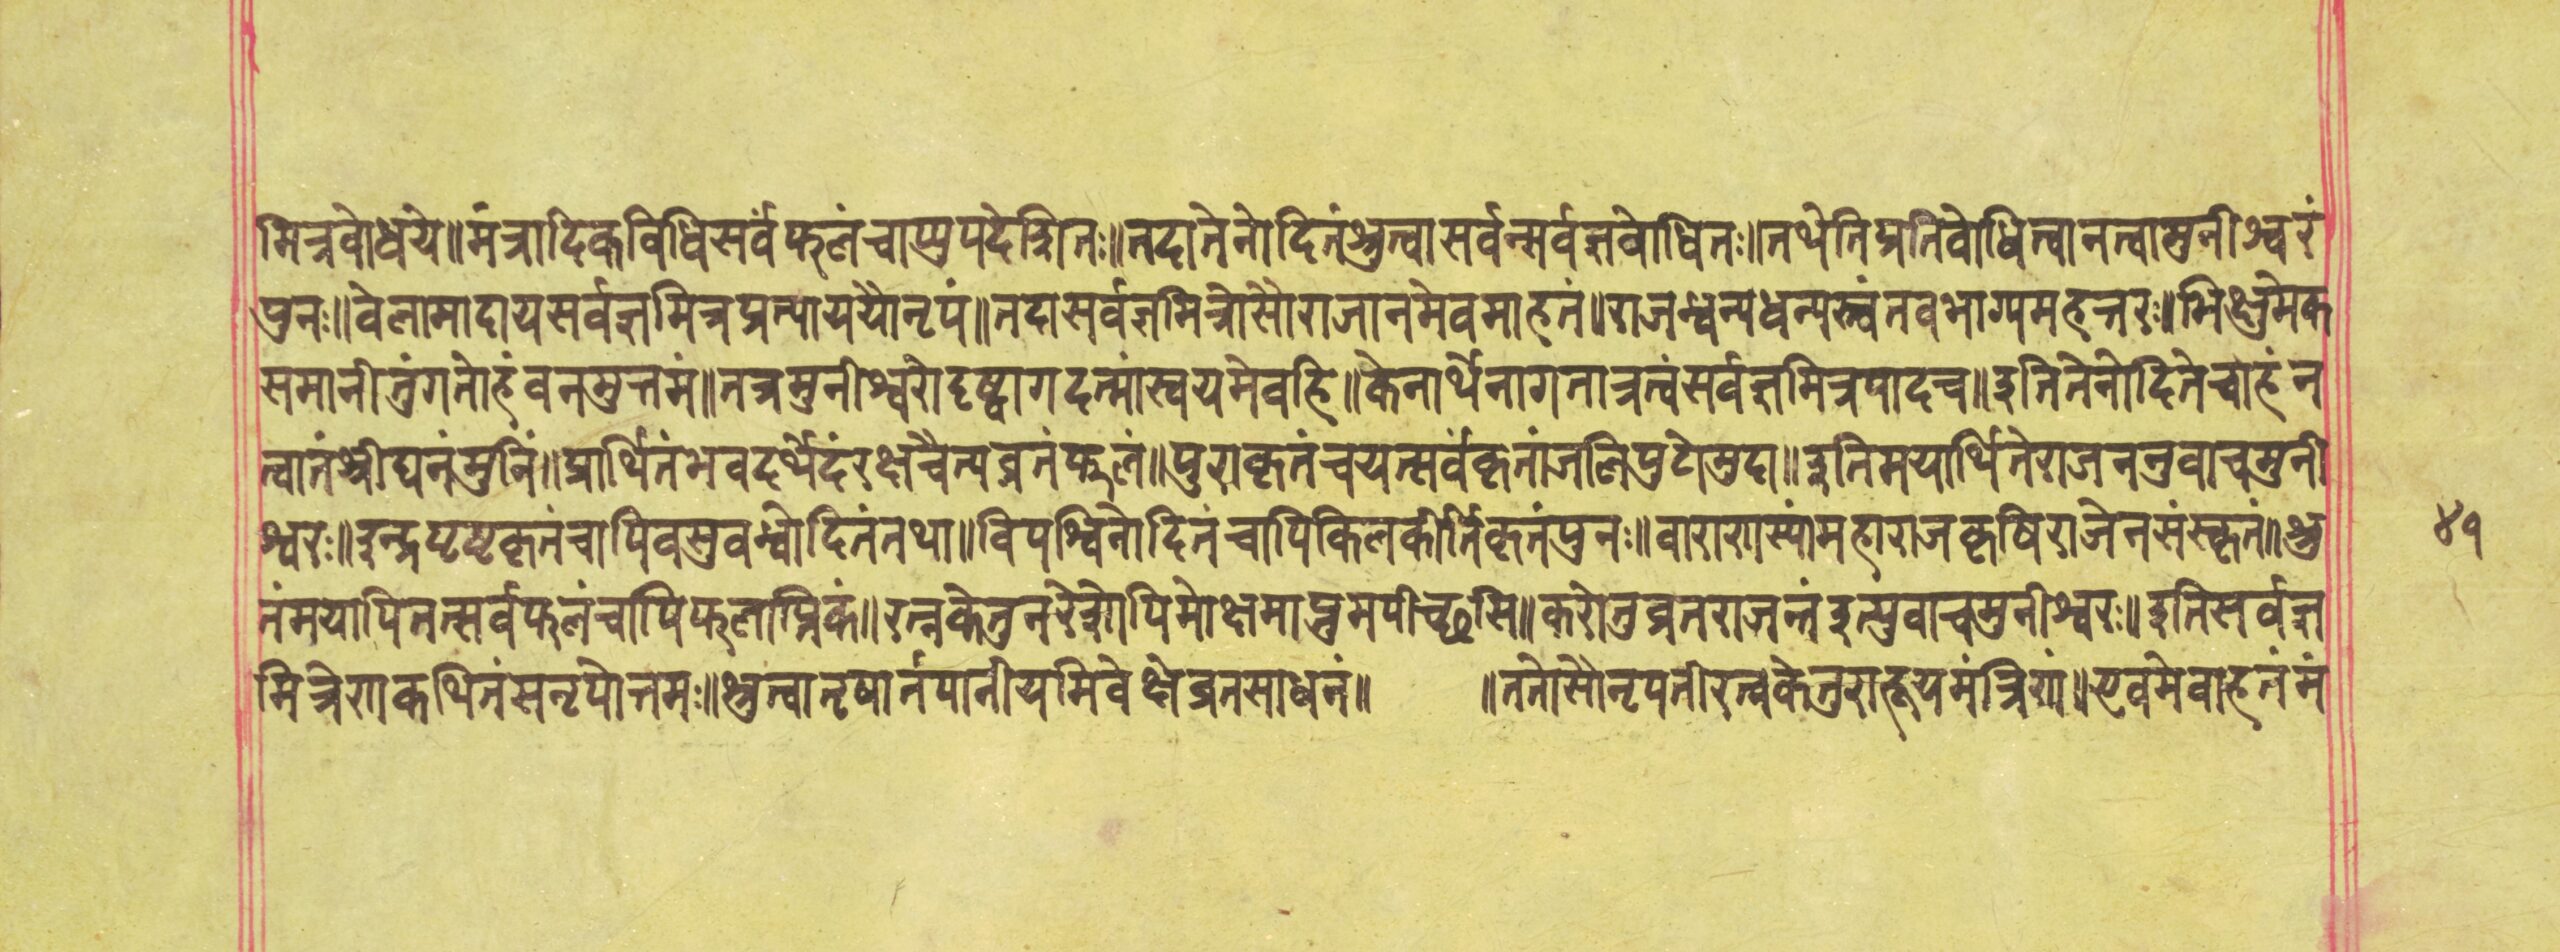 मित्रवोधये॥मंत्रादिकविधिसर्वंफलंचाप्युपदेशितः॥तदातेनोदितंश्रुत्वासर्वन्सर्वज्ञबोधितः॥तथेतिप्रतिवोधित्वानत्वामुनीश्वरं
पुनः॥वेलामादायसर्वज्ञमित्रप्रत्याययौनृपं॥तदासर्वज्ञमित्रोसौराजानमेवमाहतं॥राजन्धन्यधन्यस्त्वंतवभाग्यमहत्तरः॥भिक्षुमेक
समानीतुंगतोहंवनमुत्तमं॥तत्रमुनीश्वरोदृष्ट्वागदत्मांस्वयमेवहि॥केनार्थेनागतात्रत्वंसर्वज्ञमित्रपादच॥इतितेनोदितेचाहंन
त्वातंश्रीघनंमुनिं॥प्रार्थितंभवदर्थेदंरक्षचैत्यव्रतंफलं॥पुराकृतंचयत्सर्वंकृतांजलिपुटोमुदा॥इतिमयार्थितेराजननुवाचमुनी
श्वरः॥इन्द्रपृष्टकृतंचापिवसुवन्धोदितंतथा॥विपश्विनोदितंचापिकिलकीर्तिकृतंपुनः॥वाराणस्यांमहाराजकृषिराजेनसंस्कृतं॥श्रु
तंमयापितत्सर्वफलंचापिफलाप्तिकं॥रत्नकेतुनरेन्द्रोपिमोक्षमाप्तुमपीच्छसि॥करोतुव्रतराजन्तंइत्युवाचमुनीश्वरः॥इतिसर्वज्ञ
मित्रेणकथितंसनृपोत्तमः॥श्रुत्वातृषार्तपानीयमिवेक्षेव्रतसाधनं॥ ॥ततोसौनृपतीरत्नकेतुराहूयमंत्रिणं॥एवमेवाहतंमं
४१